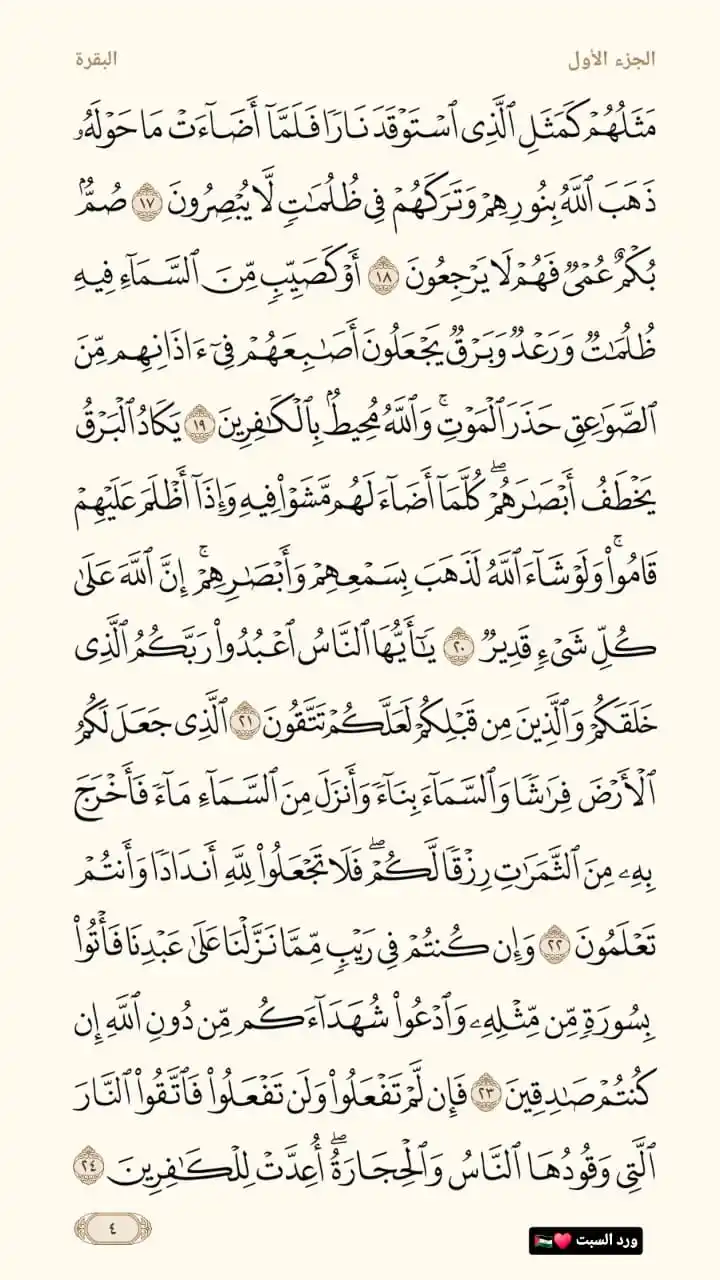 الجزء الأول
البقرة
مَثَلُهُمْ كَمَثَلِ ٱلَّذِى ٱسْتَوْقَدَ نَارًا فَلَمَّآ أَضَآءَتْ مَا حَوْلَهُۥ
ذَهَبَ ٱللَّهُ بِنُورِهِمْ وَتَرَكَهُمْ فِى ظُلُمَـٰتٍ لَّا يُبْصِرُونَ ١٧ صُمٌّۢ
بُكْمٌ عُمْىٌ فَهُمْ لَا يَرْجِعُونَ ١٨ أَوْ كَصَيِّبٍ مِّنَ ٱلسَّمَآءِ فِيهِ
ظُلُمَـٰتٌ وَرَعْدٌ وَبَرْقٌ يَجْعَلُونَ أَصَـٰبِعَهُمْ فِىٓ ءَاذَانِهِم مِّنَ
ٱلصَّوَٰعِقِ حَذَرَ ٱلْمَوْتِ ۚ وَٱللَّهُ مُحِيطٌۢ بِٱلْكَـٰفِرِينَ ١٩ يَكَادُ ٱلْبَرْقُ
يَخْطَفُ أَبْصَـٰرَهُمْ ۖ كُلَّمَآ أَضَآءَ لَهُم مَّشَوْا۟ فِيهِ وَإِذَآ أَظْلَمَ عَلَيْهِمْ
قَامُوا۟ ۚ وَلَوْ شَآءَ ٱللَّهُ لَذَهَبَ بِسَمْعِهِمْ وَأَبْصَـٰرِهِمْ ۚ إِنَّ ٱللَّهَ عَلَىٰ
كُلِّ شَىْءٍ قَدِيرٌ ٢٠ يَـٰٓأَيُّهَا ٱلنَّاسُ ٱعْبُدُوا۟ رَبَّكُمُ ٱلَّذِى
خَلَقَكُمْ وَٱلَّذِينَ مِن قَبْلِكُمْ لَعَلَّكُمْ تَتَّقُونَ ٢١ ٱلَّذِى جَعَلَ لَكُمُ
ٱلْأَرْضَ فِرَٰشًا وَٱلسَّمَآءَ بِنَآءً وَأَنزَلَ مِنَ ٱلسَّمَآءِ مَآءً فَأَخْرَجَ
بِهِۦ مِنَ ٱلثَّمَرَٰتِ رِزْقًا لَّكُمْ ۖ فَلَا تَجْعَلُوا۟ لِلَّهِ أَندَادًا وَأَنتُمْ
تَعْلَمُونَ ٢٢ وَإِن كُنتُمْ فِى رَيْبٍ مِّمَّا نَزَّلْنَا عَلَىٰ عَبْدِنَا فَأْتُوا۟
بِسُورَةٍ مِّن مِّثْلِهِۦ وَٱدْعُوا۟ شُهَدَآءَكُم مِّن دُونِ ٱللَّهِ إِن
كُنتُمْ صَـٰدِقِينَ ٢٣ فَإِن لَّمْ تَفْعَلُوا۟ وَلَن تَفْعَلُوا۟ فَٱتَّقُوا۟ ٱلنَّارَ
ٱلَّتِى وَقُودُهَا ٱلنَّاسُ وَٱلْحِجَارَةُ ۖ أُعِدَّتْ لِلْكَـٰفِرِينَ ٢٤
٤
ورد السبت ❤️🇵🇸